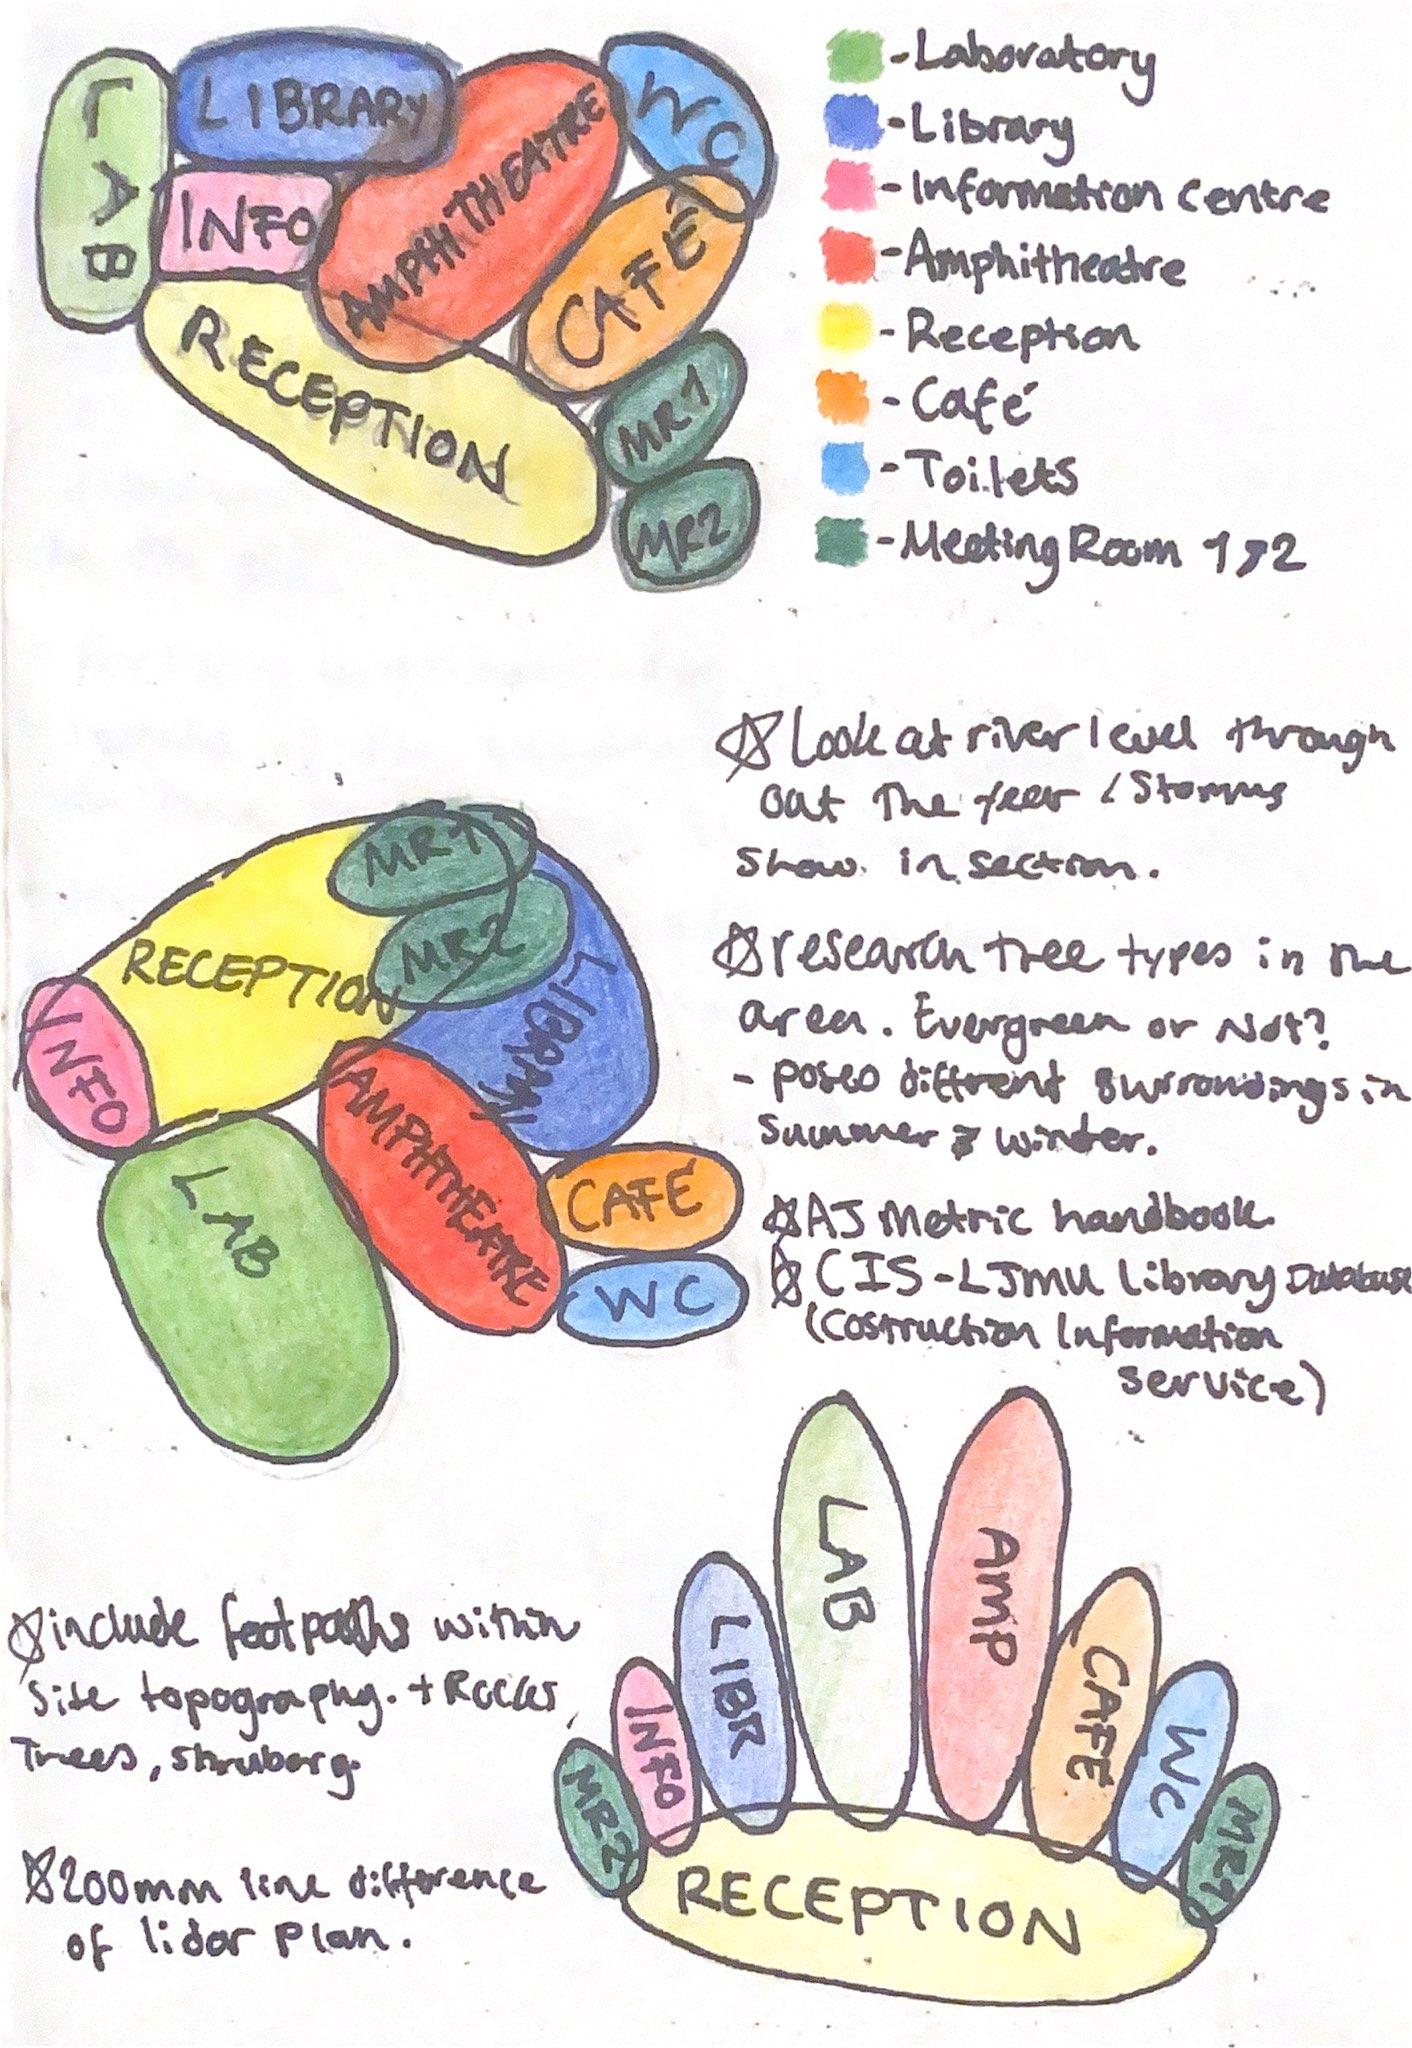 LAB
LIBRARY
INFO
AMPHITHEATRE
WC
CAFÉ
RECEPTION
MR1
MR2
- Laboratory
- Library
- Information centre
- Amphitheatre
- Reception
- Café
- Toilets
- Meeting Room 1 & 2
Look at river level through
out the year / Storms
show in section.
research tree types in the
area. Evergreen or Not?
- poses different surroundings in
summer & winter.
AJ Metric handbook.
CIS - LJMU Library Database
(Costruction Information
service)
RECEPTION
MR1
MR2
LIBRARY
INFO
LAB
AMPHITHEATRE
CAFÉ
WC
include footpaths within
site topography. + Rocks,
Trees, shruberg.
200mm line difference
of lidar plan.
MR2
INFO
LIBR
LAB
AMP
CAFÉ
WC
MR1
RECEPTION